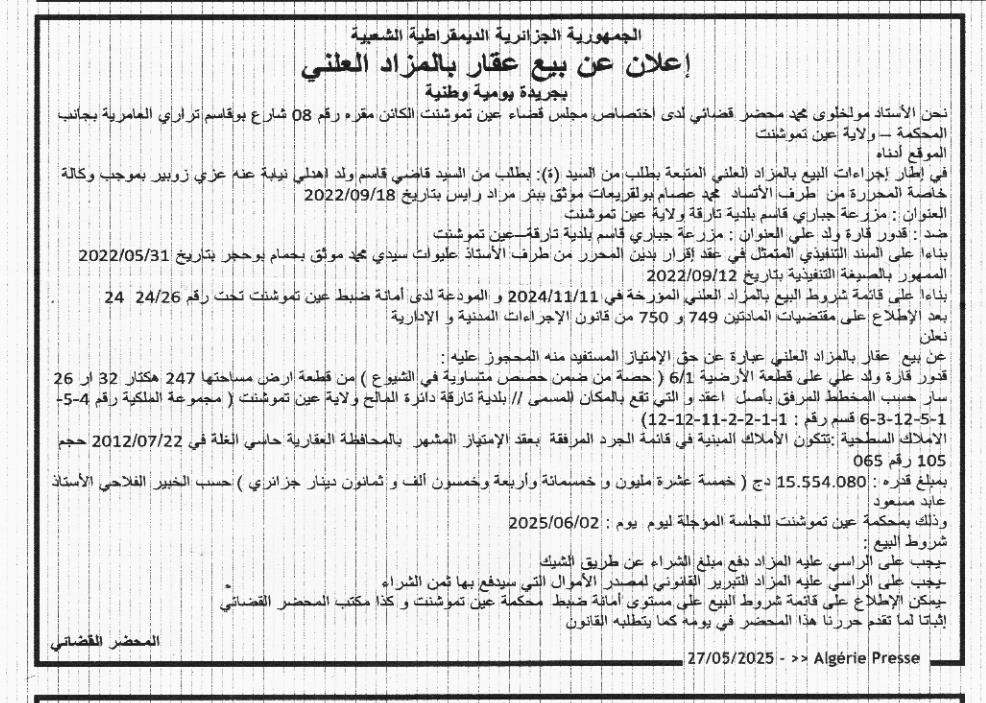 الجمهورية الجزائرية الديمقراطية الشعبية
إعلان عن بيع عقار بالمزاد العلني
بجريدة يومية وطنية
نحن الأستاد مولخلوي محمد محضر قضائي لدى إختصاص مجلس قضاء عين تموشنت الكائن مقره رقم 08 شارع بوقاسم تراري العامرية بجانب
المحكمة – ولاية عين تموشنت
الموقع أدناه
في إطار إجراءات البيع بالمزاد العلني المتبعة بطلب من السيد (ة): بطلب من السيد قاضي قاسم ولد اهدلي نيابة عنه عزي زوبير بموجب وكالة
خاصة المحررة من طرف الأتساد محمد عصام بولقريعات موثق ببئر مراد رايس بتاريخ 2022/09/18
العنوان : مزرعة جباري قاسم بلدية تارقة ولاية عين تموشنت
ضد : قدور قارة ولد علي العنوان : مزرعة جباري قاسم بلدية تارقة–عين تموشنت
بناءا على السند التنفيذي المتمثل في عقد إقرار بدين المحرر من طرف الأستاذ عليوات سيدي محمد موثق بحمام بوحجر بتاريخ 2022/05/31
الممهور بالصيغة التنفيذية بتاريخ 2022/09/12
بناءا على قائمة شروط البيع بالمزاد العلني المؤرخة في 2024/11/11 و المودعة لدى أمانة ضبط عين تموشنت تحت رقم 24/26 24
بعد الإطلاع على مقتضيات المادتين 749 و 750 من قانون الإجراءات المدنية و الإدارية
نعلن
عن بيع عقار بالمزاد العلني عبارة عن حق الإمتياز المستفيد منه المحجوز عليه :
قدور قارة ولد علي على قطعة الأرضية 6/1 ( حصة من ضمن حصص متساوية في الشيوع ) من قطعة ارض مساحتها 247 هكتار 32 ار 26
سار حسب المخطط المرفق بأصل اعقد و التي تقع بالمكان المسمى // بلدية تارقة دائرة المالح ولاية عين تموشنت ( مجموعة الملكية رقم 4-5-
1-5-12-3-6 قسم رقم : 1-1-2-2-11-12-12)
الاملاك السطحية :تتكون الأملاك المبنية في قائمة الجرد المرفقة بعقد الإمتياز المشهر بالمحافظة العقارية حاسي الغلة في 2012/07/22 حجم
105 رقم 065
بمبلغ قدره : 15.554.080 دج ( خمسة عشرة مليون و خمسمائة وأربعة وخمسون ألف و ثمانون دينار جزائري ) حسب الخبير الفلاحي الأستاذ
عابد مسعود
وذلك بمحكمة عين تموشنت للجلسة المؤجلة ليوم يوم : 2025/06/02
شروط البيع :
-يجب على الراسي عليه المزاد دفع مبلغ الشراء عن طريق الشيك
-يجب على الراسي عليه المزاد التبرير القانوني لمصدر الأموال التي سيدفع بها ثمن الشراء
-يمكن الإطلاع على قائمة شروط البيع على مستوى أمانة ضبط محكمة عين تموشنت و كذا مكتب المحضر القضائي
إثباتا لما تقدم حررنا هذا المحضر في يومه كما يتطلبه القانون
المحضر القضائي
27/05/2025 - >> Algérie Presse